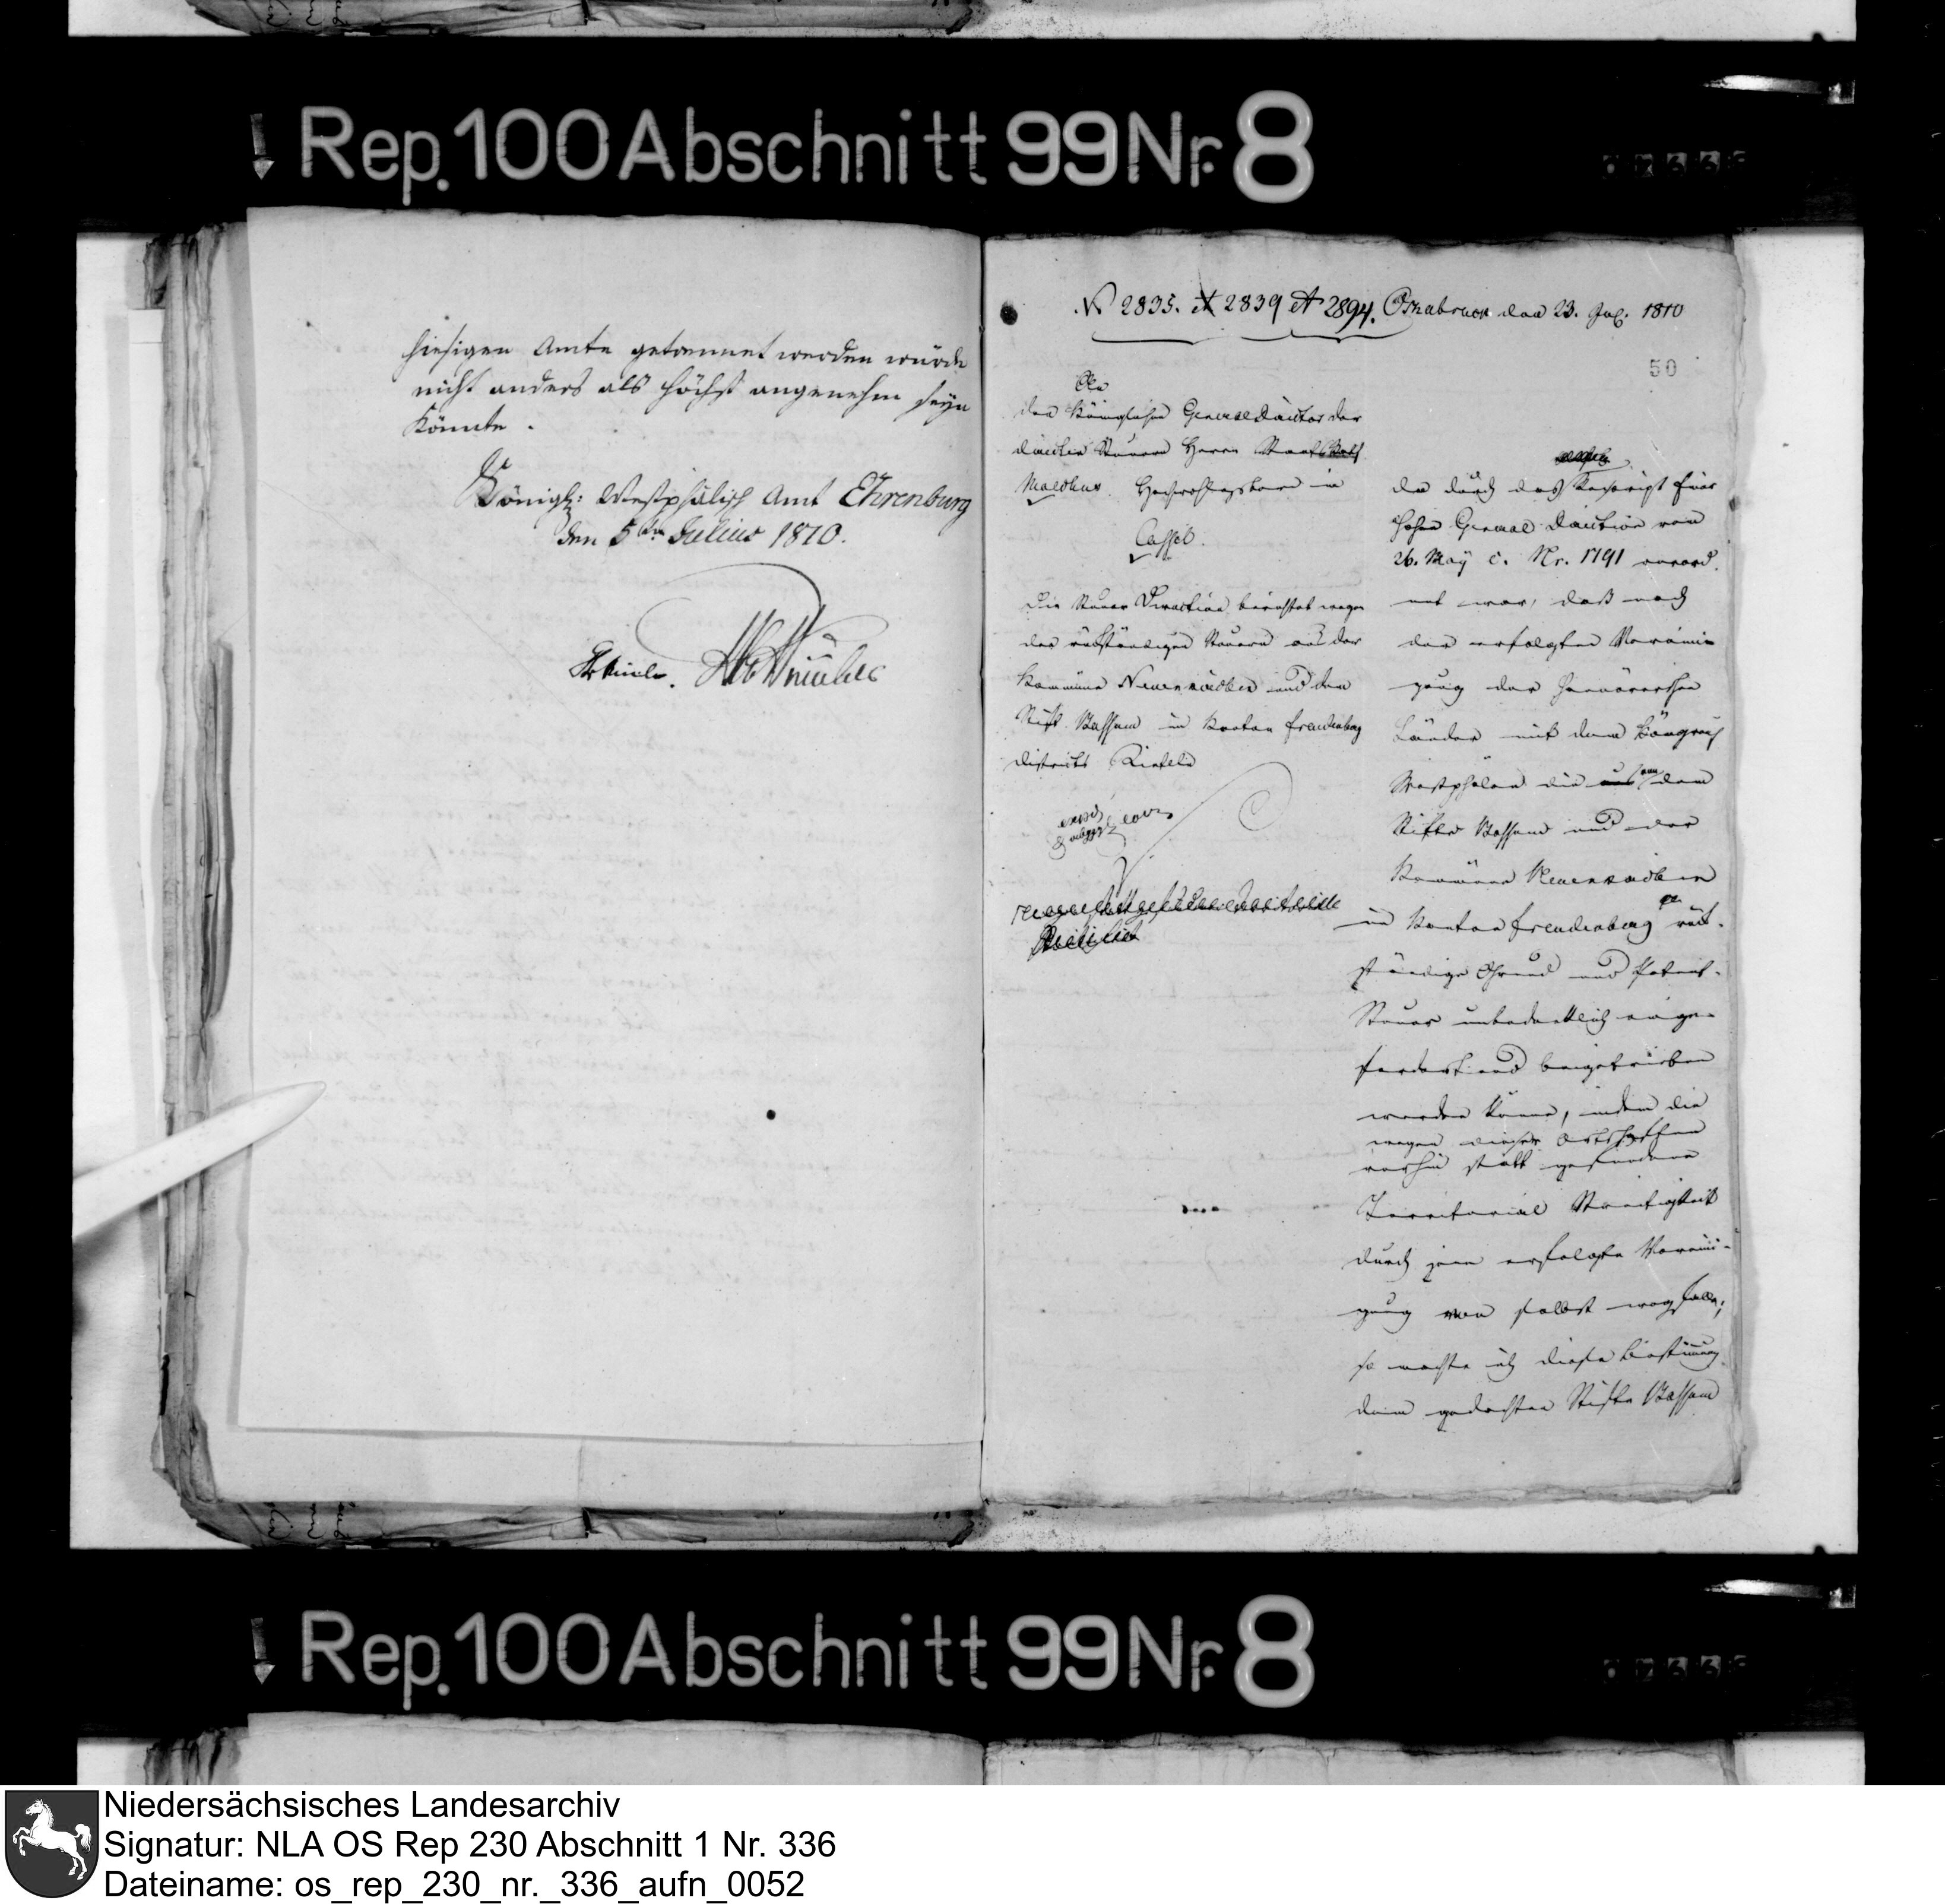 Rep. 100 Abschnitt 99 Nr. 8
hiesigen Amte getrennet werden würde
nicht anders als höchst angenehm seyn
könnte.
Königl: Westphälisch Amt Ehrenburg
den 5ten Julius 1810.
N 2835. et 2839 et 2894. Osnabruck den 23. Jul. 1810
50
An
den Königlichen General Director der
directen Steuern Herrn Staats Rath
Malchus Hochwohlgeboren in
Cassel.
Die Steuer Direction berichtet wegen
der rückständigen Steuern aus der
Kommüne Neuenkirchen und dem
Stift Bassum im Kanton Freudenberg
Districts Rinteln
da durch das Rescript Einer
hohen General Direction vom
26. May c. Nr. 1791 verord-
net war, daß nach
der erfolgten Vereini-
gung der hannöverschen
Länder mit dem Königreich
Westphalen die von dem
Stifte Bassum und der
Kommüne Neuenkirchen
im Kanton Freudenberg rück-
ständige Grund und Patent-
Steuer unbedenklich einge-
fordert und beigetrieben
werden könne, indem die
wegen dieser Ortschaften
vorhin statt gefundene
Territorial Streitigkeit
durch jene erfolgte Vereini-
gung von selbst wegfalle;
so machte ich diese Bestimmung
dem gedachten Stifte Bassum
Rep. 100 Abschnitt 99 Nr. 8
Niedersächsisches Landesarchiv
Signatur: NLA OS Rep 230 Abschnitt 1 Nr. 336
Dateiname: os_rep_230_nr._336_aufn_0052